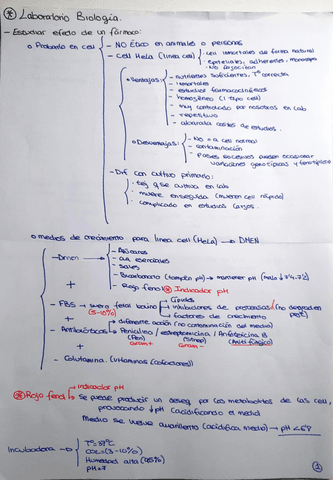 * Laboratorio Biología.
- Estudiar efecto de un fármaco:
o Probando en cell
- NO Ético en animales o personas
- Cell Hela (linea cell)
cell inmortales de forma natural
epiteliales, adherentes, monocapa
No fagocitan
o Ventajas
- nutrientes suficientes, Tª correcta
- inmortales
- estudios farmacocinéticos
- homogéneo (1 tipo cell)
- muy controlado por nosotros en lab
- repetitivo
- abarata costes de estudios.
o Desventajas
- No = a cell normal
- contaminación
- Pases sucesivos pueden ocasionar
variaciones genotípicas y fenotípicas
- Dif con cultivo primario:
· tej q se cultiva en lab
· muere enseguida (mueren cell rápido)
· complicado en estudios largos.
o medios de crecimiento para linea cell (Hela) → DMEN
- Dmen
- Azúcares
- aa esenciales
- sales
- Bicarbonato (tampón pH) → mantener pH
- Rojo fenol * Indicador pH
+
- FBS → suero fetal bovino
(5-10%)
Lípidos
inhibidores de proteasas (no degraden
prot)
factores de crecimiento
+
- Antibióticos
diferente acción (no contaminación del medio)
Penicilina / estreptomicina / Anfotericina B
(Pen) (Strep) (Anti fúngico)
Gram+ Gram-
+
- Glutamina. (vitaminas (cofactores))
* Rojo fenol
indicador pH
se puede producir un deseq. por los metabolitos de las cell,
provocando ↓pH (acidificando el medio)
Medio se vuelve amarillento (acidifica medio) → pH < 6'8
Incubadora →
Tª = 37ºC
CO2 = (5-10%)
Humedad alta (95%)
pH = 7
1